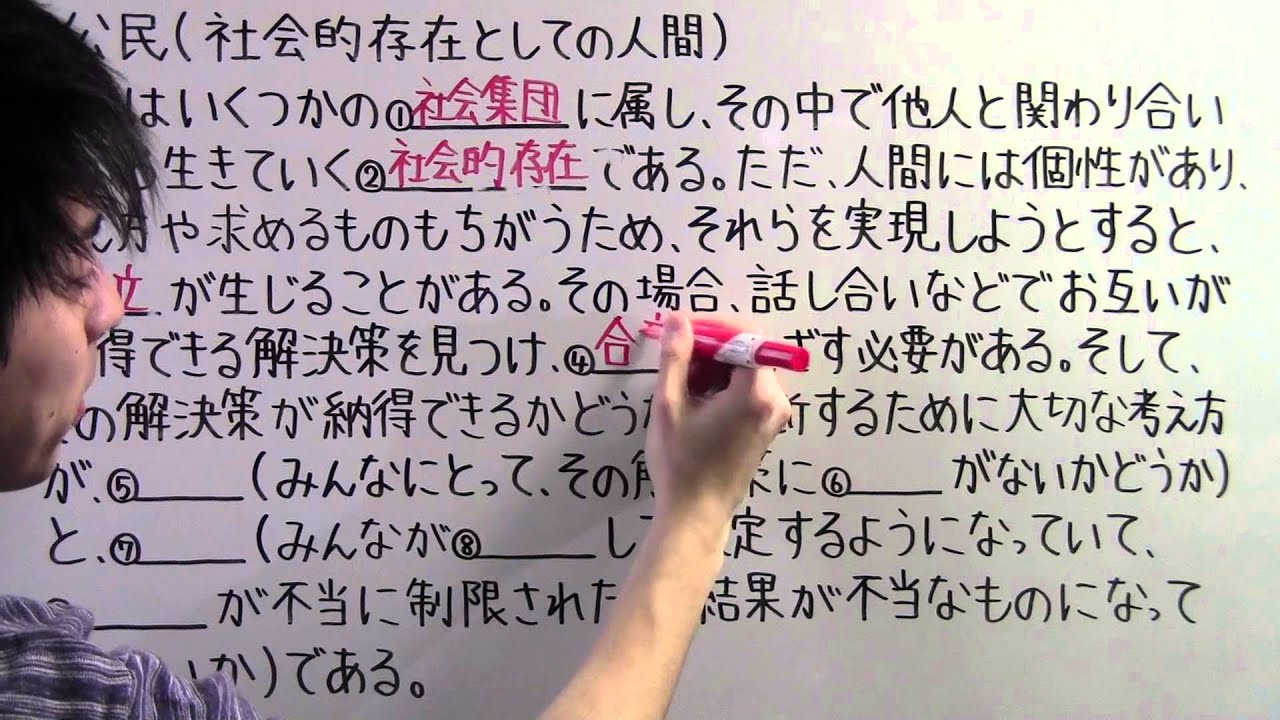 公民(社会的存在としての人間)
はいくつかの①社会集団に属し、その中で他人と関わり合い
生きていく②社会的存在である。ただ、人間には個性があり、
方や求めるものもちがうため、それらを実現しようとすると、
立が生じることがある。その場合、話し合いなどでお互いが
得できる解決策を見つけ、④合 ざす必要がある。そして、
の解決策が納得できるかどうか 断するために大切な考え方
が、⑤____(みんなにとって、その解 策に⑥____がないかどうか)
と、⑦____(みんなが⑧____し 定するようになっていて、
____が不当に制限された 結果が不当なものになって
いか)である。